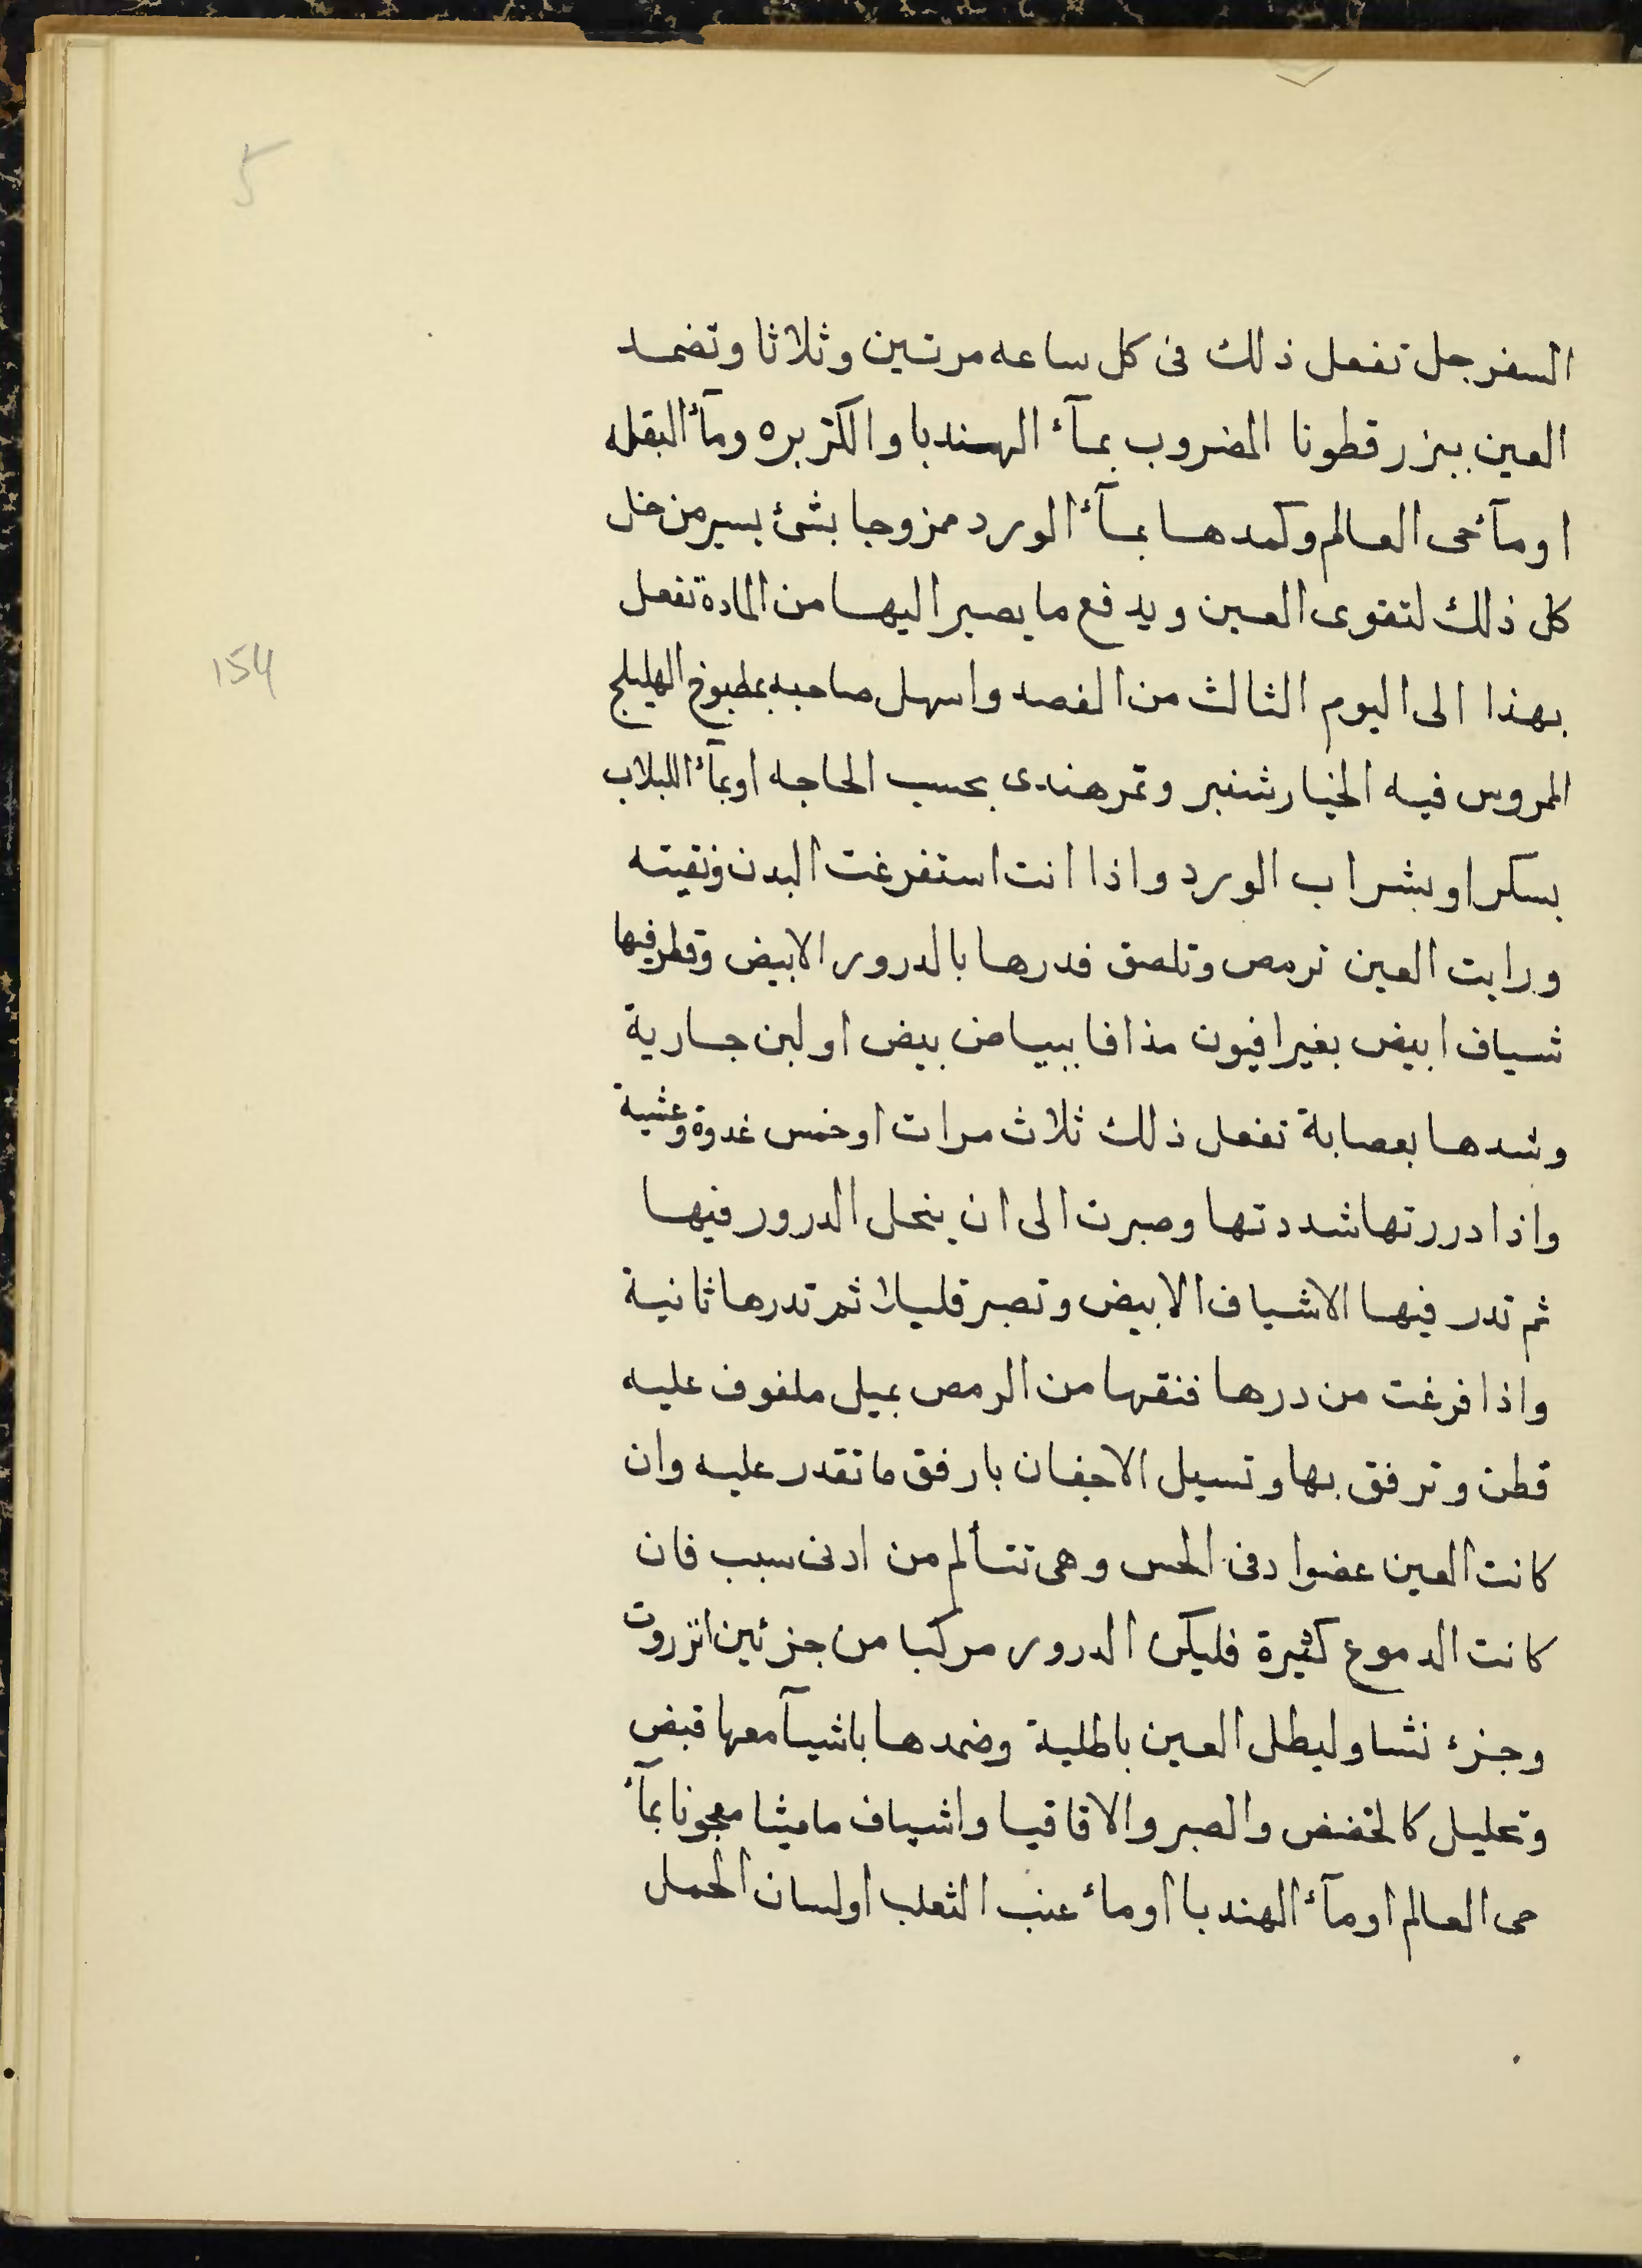 5
السفرجل تفعل ذلك فى كل ساعه مرتين وثلاثا وتضمد
العين ببزر قطونا المضروب بمآء الهندبا والكزبره ومآء البقله
او مآء حى العالم وكمدها بمآء الورد ممزوجا بشئ يسير من خل
كل ذلك لتقوى العين ويدفع ما يصير اليها من المادة تفعل
154
بهذا الى اليوم الثالث من الفصد واسهل صاحبه بمطبوخ الهليلج
الممروس فيه الخيار شنبر وتمر هندى بحسب الحاجه او بمآء اللبلاب
بسكر او بشراب الورد واذا انت استفرغت البدن ونقيته
ورايت العين ترمص وتلصق فدرها بالدرور الابيض وقطر فيها
شياف ابيض بغير افيون مذافا ببياض بيض او لبن جارية
وشدها بعصابة تفعل ذلك ثلاث مرات او خمس غدوة وعشية
واذا دررتها شددتها وصبرت الى ان ينحل الدرور فيها
ثم تدر فيها الاشياف الابيض وتصبر قليلا ثم تدرها ثانية
واذا فرغت من درها فنقها من الرمص بميل ملفوف عليه
قطن وترفق بها وتسيل الاجفان بارفق ما تقدر عليه وان
كانت العين عضوا دفى الحس وهى تتألم من ادنى سبب فان
كانت الدموع كثيرة فليكن الدرور مركبا من جزئين انزروت
وجزء نشا وليطل العين بالطلية وضمدها باشيآ معها قبض
وتحليل كالحضض والصبر والاقاقيا واشياف ماميثا معجونا بمآء
حى العالم او مآء الهندبا او مآء عنب الثعلب او لسان الحمل